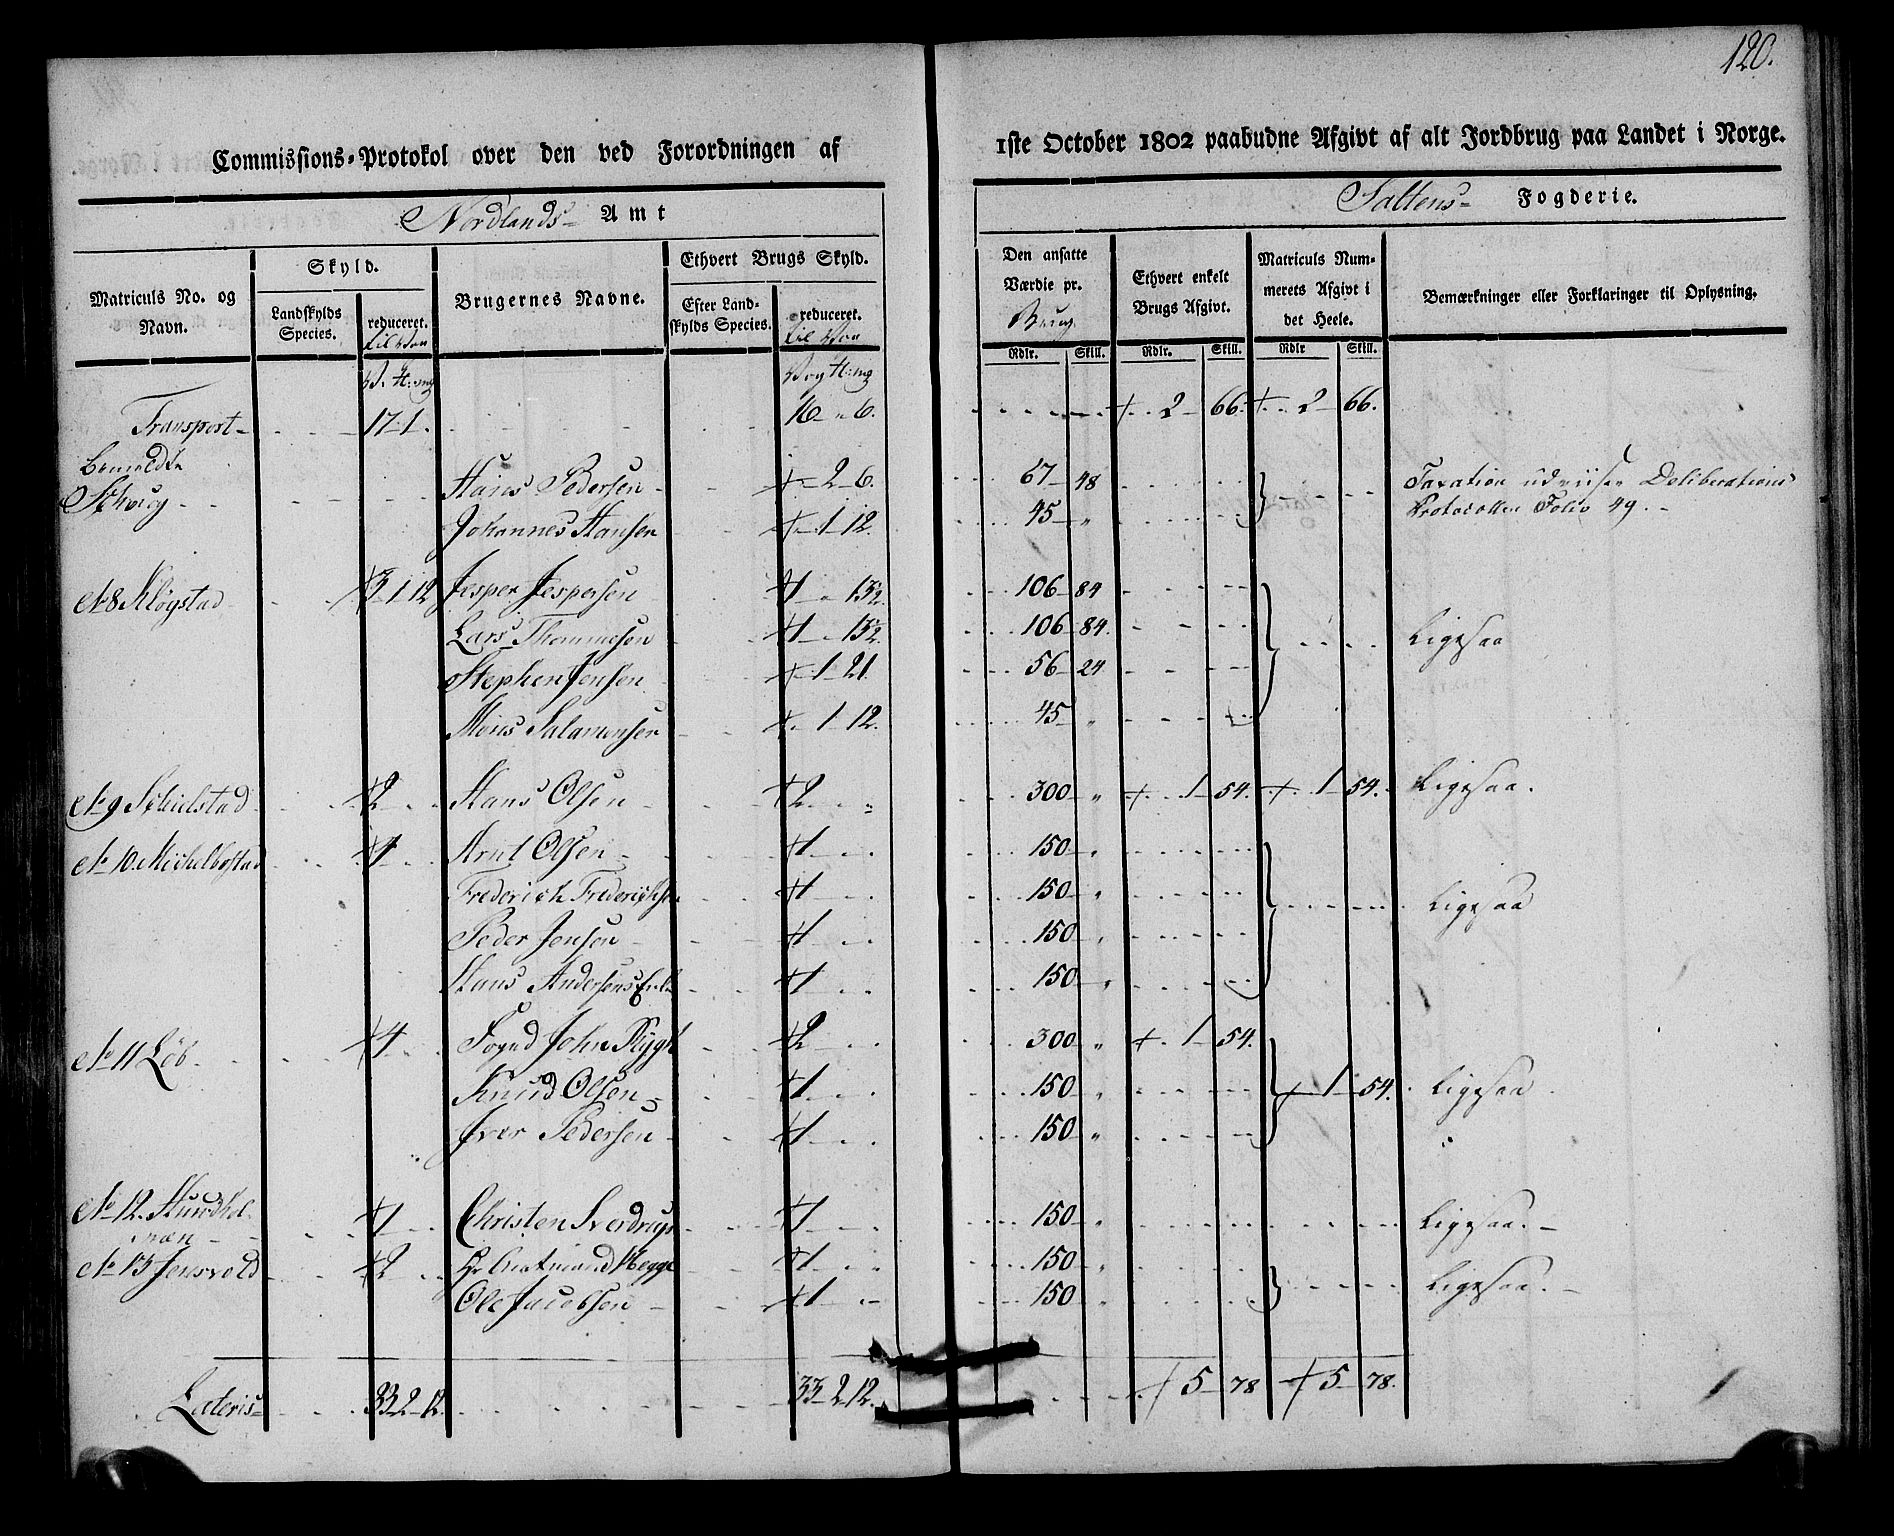 120.
Commissions-Protokol over den ved Forordningen af 1ste October 1802 paabudne Afgivt af alt Jordbrug paa Landet i Norge.
Nordlands- Amt Saltens- Fogderie.
Matriculs No. og Navn. Skyld. Brugernes Navne. Ethvert Brugs Skyld. Den ansatte Værdie pr. Brug Ethvert enkelt Brugs Afgivt. Matriculs Nummerets Afgivt i det Heele. Bemærkninger eller Forklaringer til Oplysning.
Landskylds Species. reduceret. til Efter Landskylds Species. reduceret. til
Rdlr. Skill. Rdlr. Skill. Rdlr Skill.
Transport 17-1. 16 - 6. 2 66. 2 66.
bemeldte
Schoug Hans Pedersen 2-6. 67 48 Taxation udviiser Deliberations
Johannes Hansen 1 12. 45 " Protocollen Folio 49.
No 8 Kløgstad 3 1 12 Jesper Jespersen 1 " 13½ 106 84
Lars Thommesen 1 " 13½ 106 84. Ligesaa
Stephen Jensen 1 21. 56 24
Mons Salamonsen 1 12. 45 "
No 9 Schielstad 2 Hans Olsen 2 " 300 " 1 54. 1 54. Ligesaa.
No 10. Michelbostad 4 Arnt Olsen 1 150 "
Frederich Frederichsen 1 150 " Ligesaa
Peder Jensen 1 150 "
Hans Andersens Enke 1 150 "
No 11 Løb 4 Fogud John Rygh 2 300 " 1 54.
Knud Olsen 1 150 " 1 54. Ligesaa
Iver Pedersen 1 150 "
No 12. Hundhol-
men 1 Christen Sverdrups 1 150 " Ligesaa.
No 13 Jensvold 2 Hr Hegge 1 150 "
Ole Jacobsen 1 150 " Ligesaa.
Lateris 33 2 12. 33 2 12. 5 78 5 78.